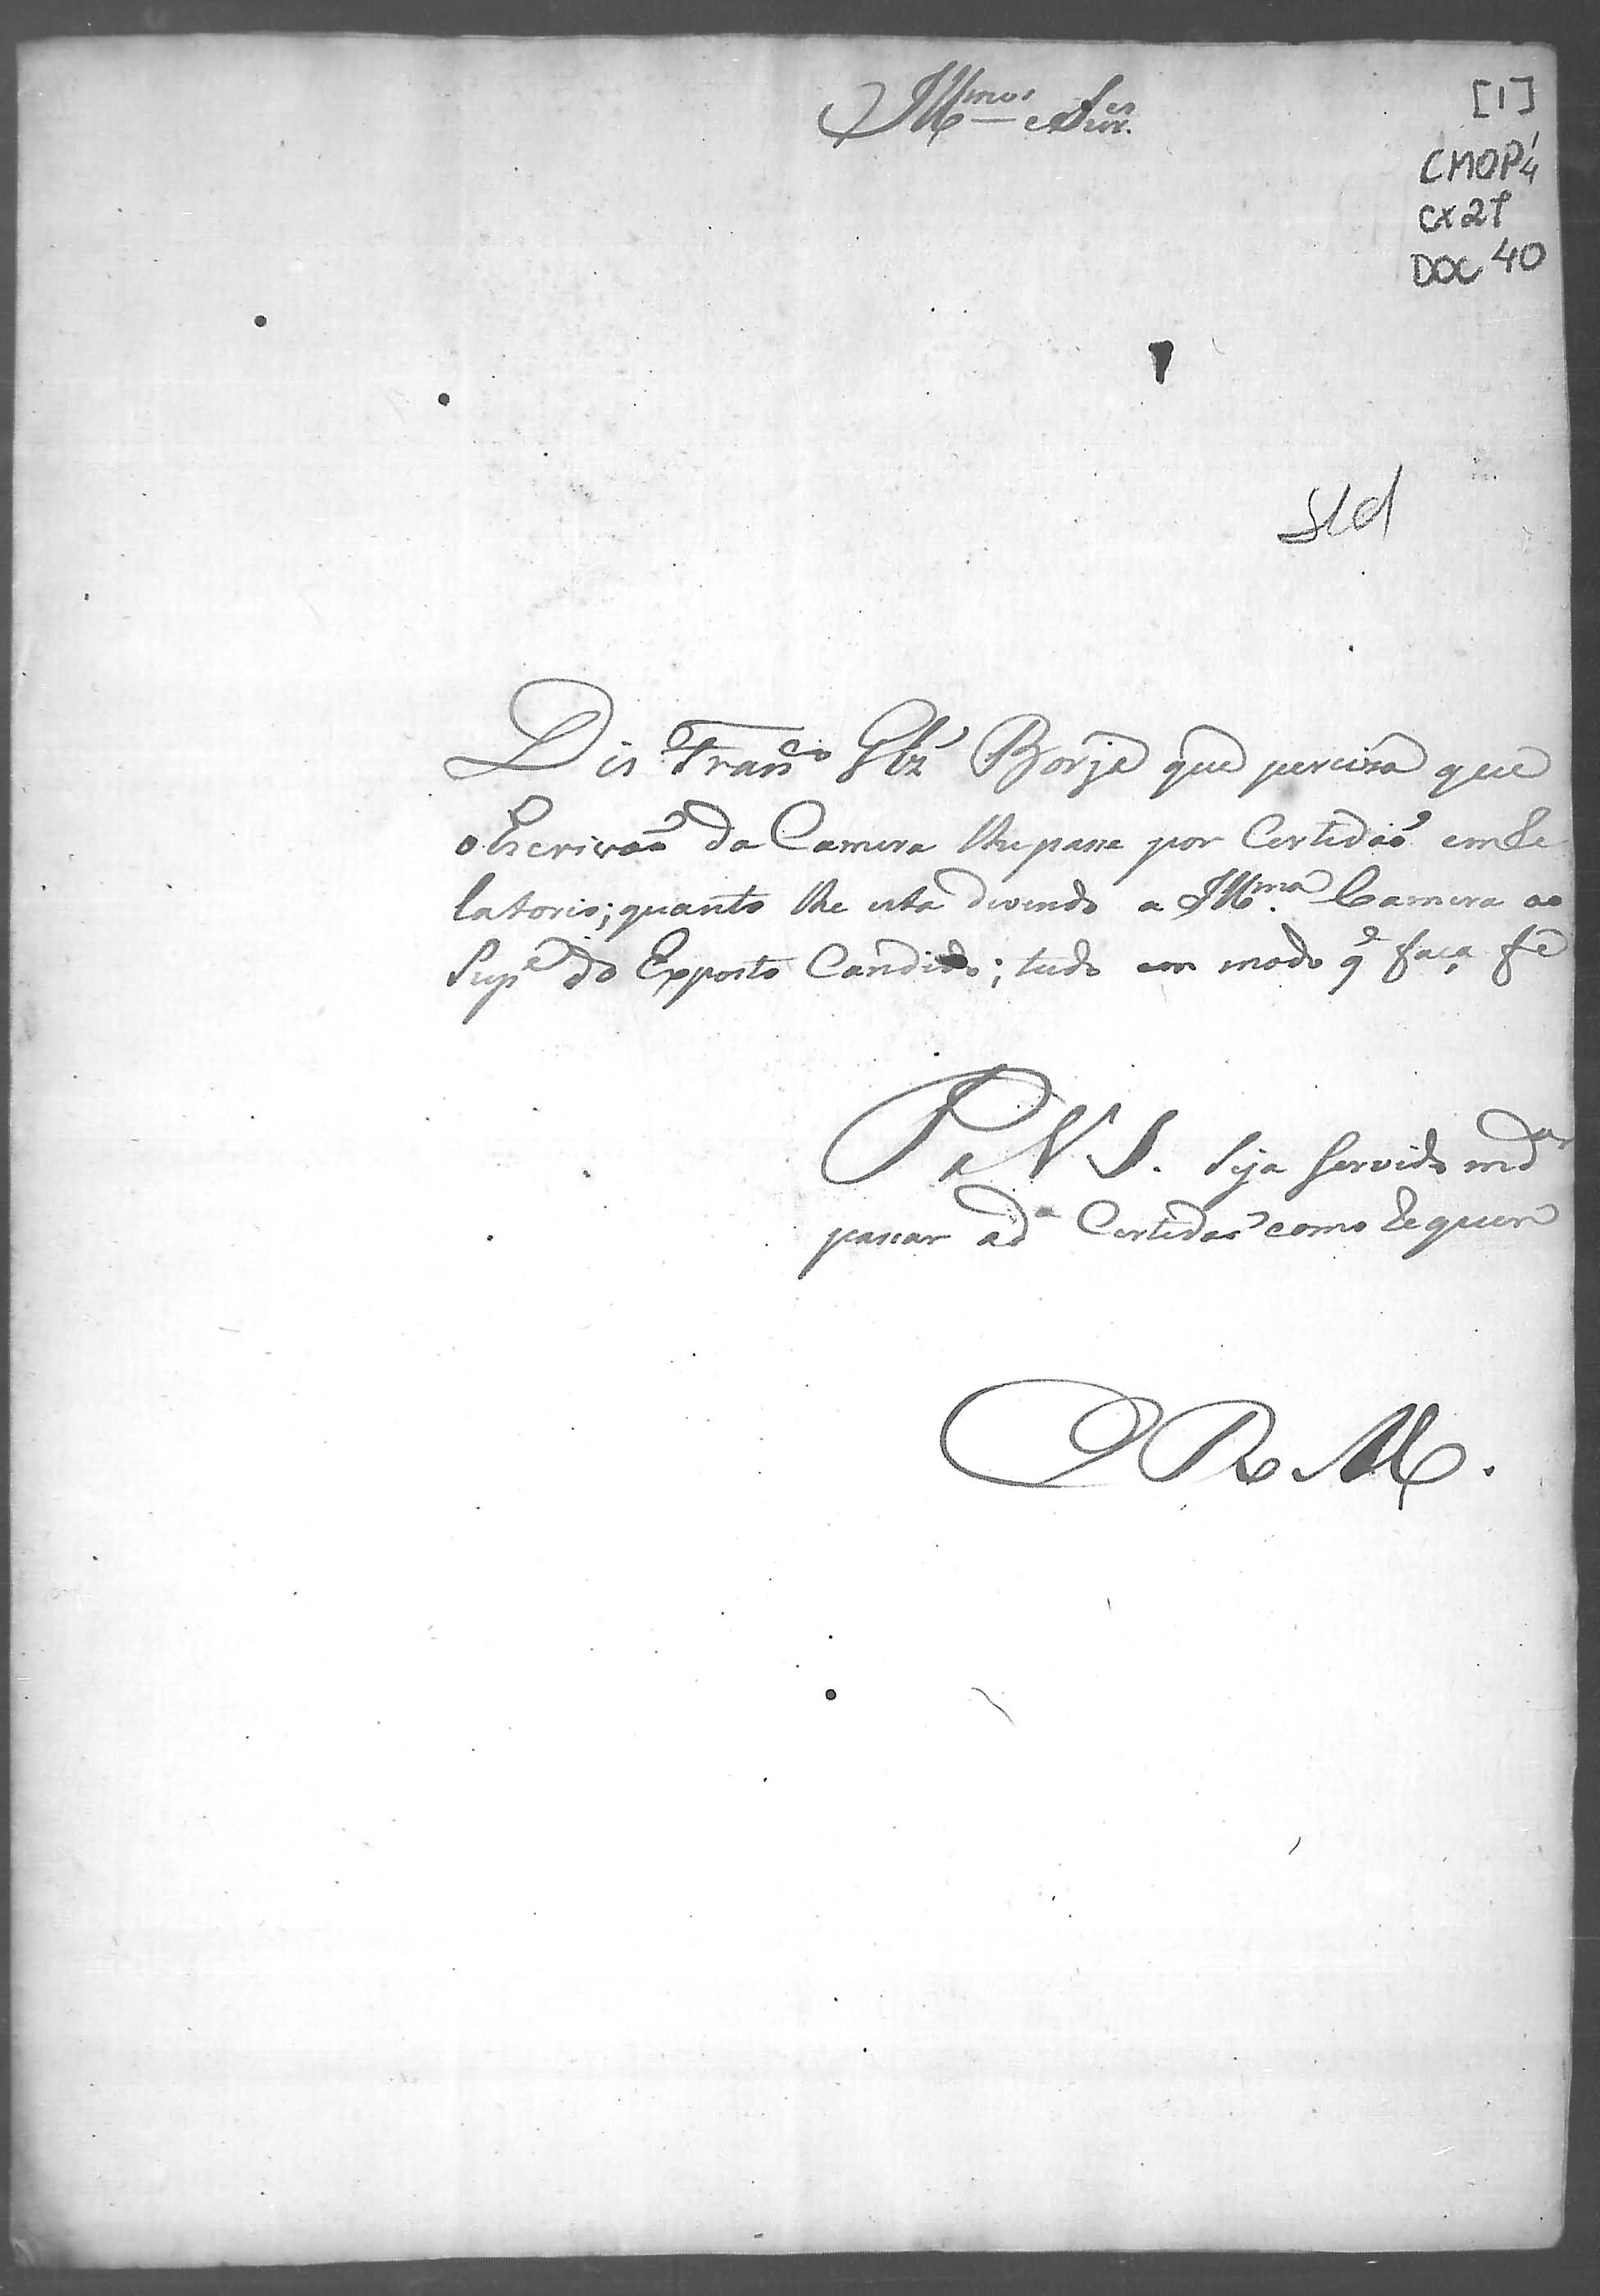 Ill.mos Snr.es
[1]
CMOP 1/4
CX 27
DOC 40
s/d
Dis Franco Glz' Borja que percisa que
o Escrivaõ da Camera lhe passe por Certidaõ em Re
latorio; quanto lhe esta devendo a Ill.ma Camera ao
Supe do Exposto Candido; tudo em modo q̃ faça fé
P. a V. S. Seja Servido mdar
passar a da Certidaõ como Requer
E R M.